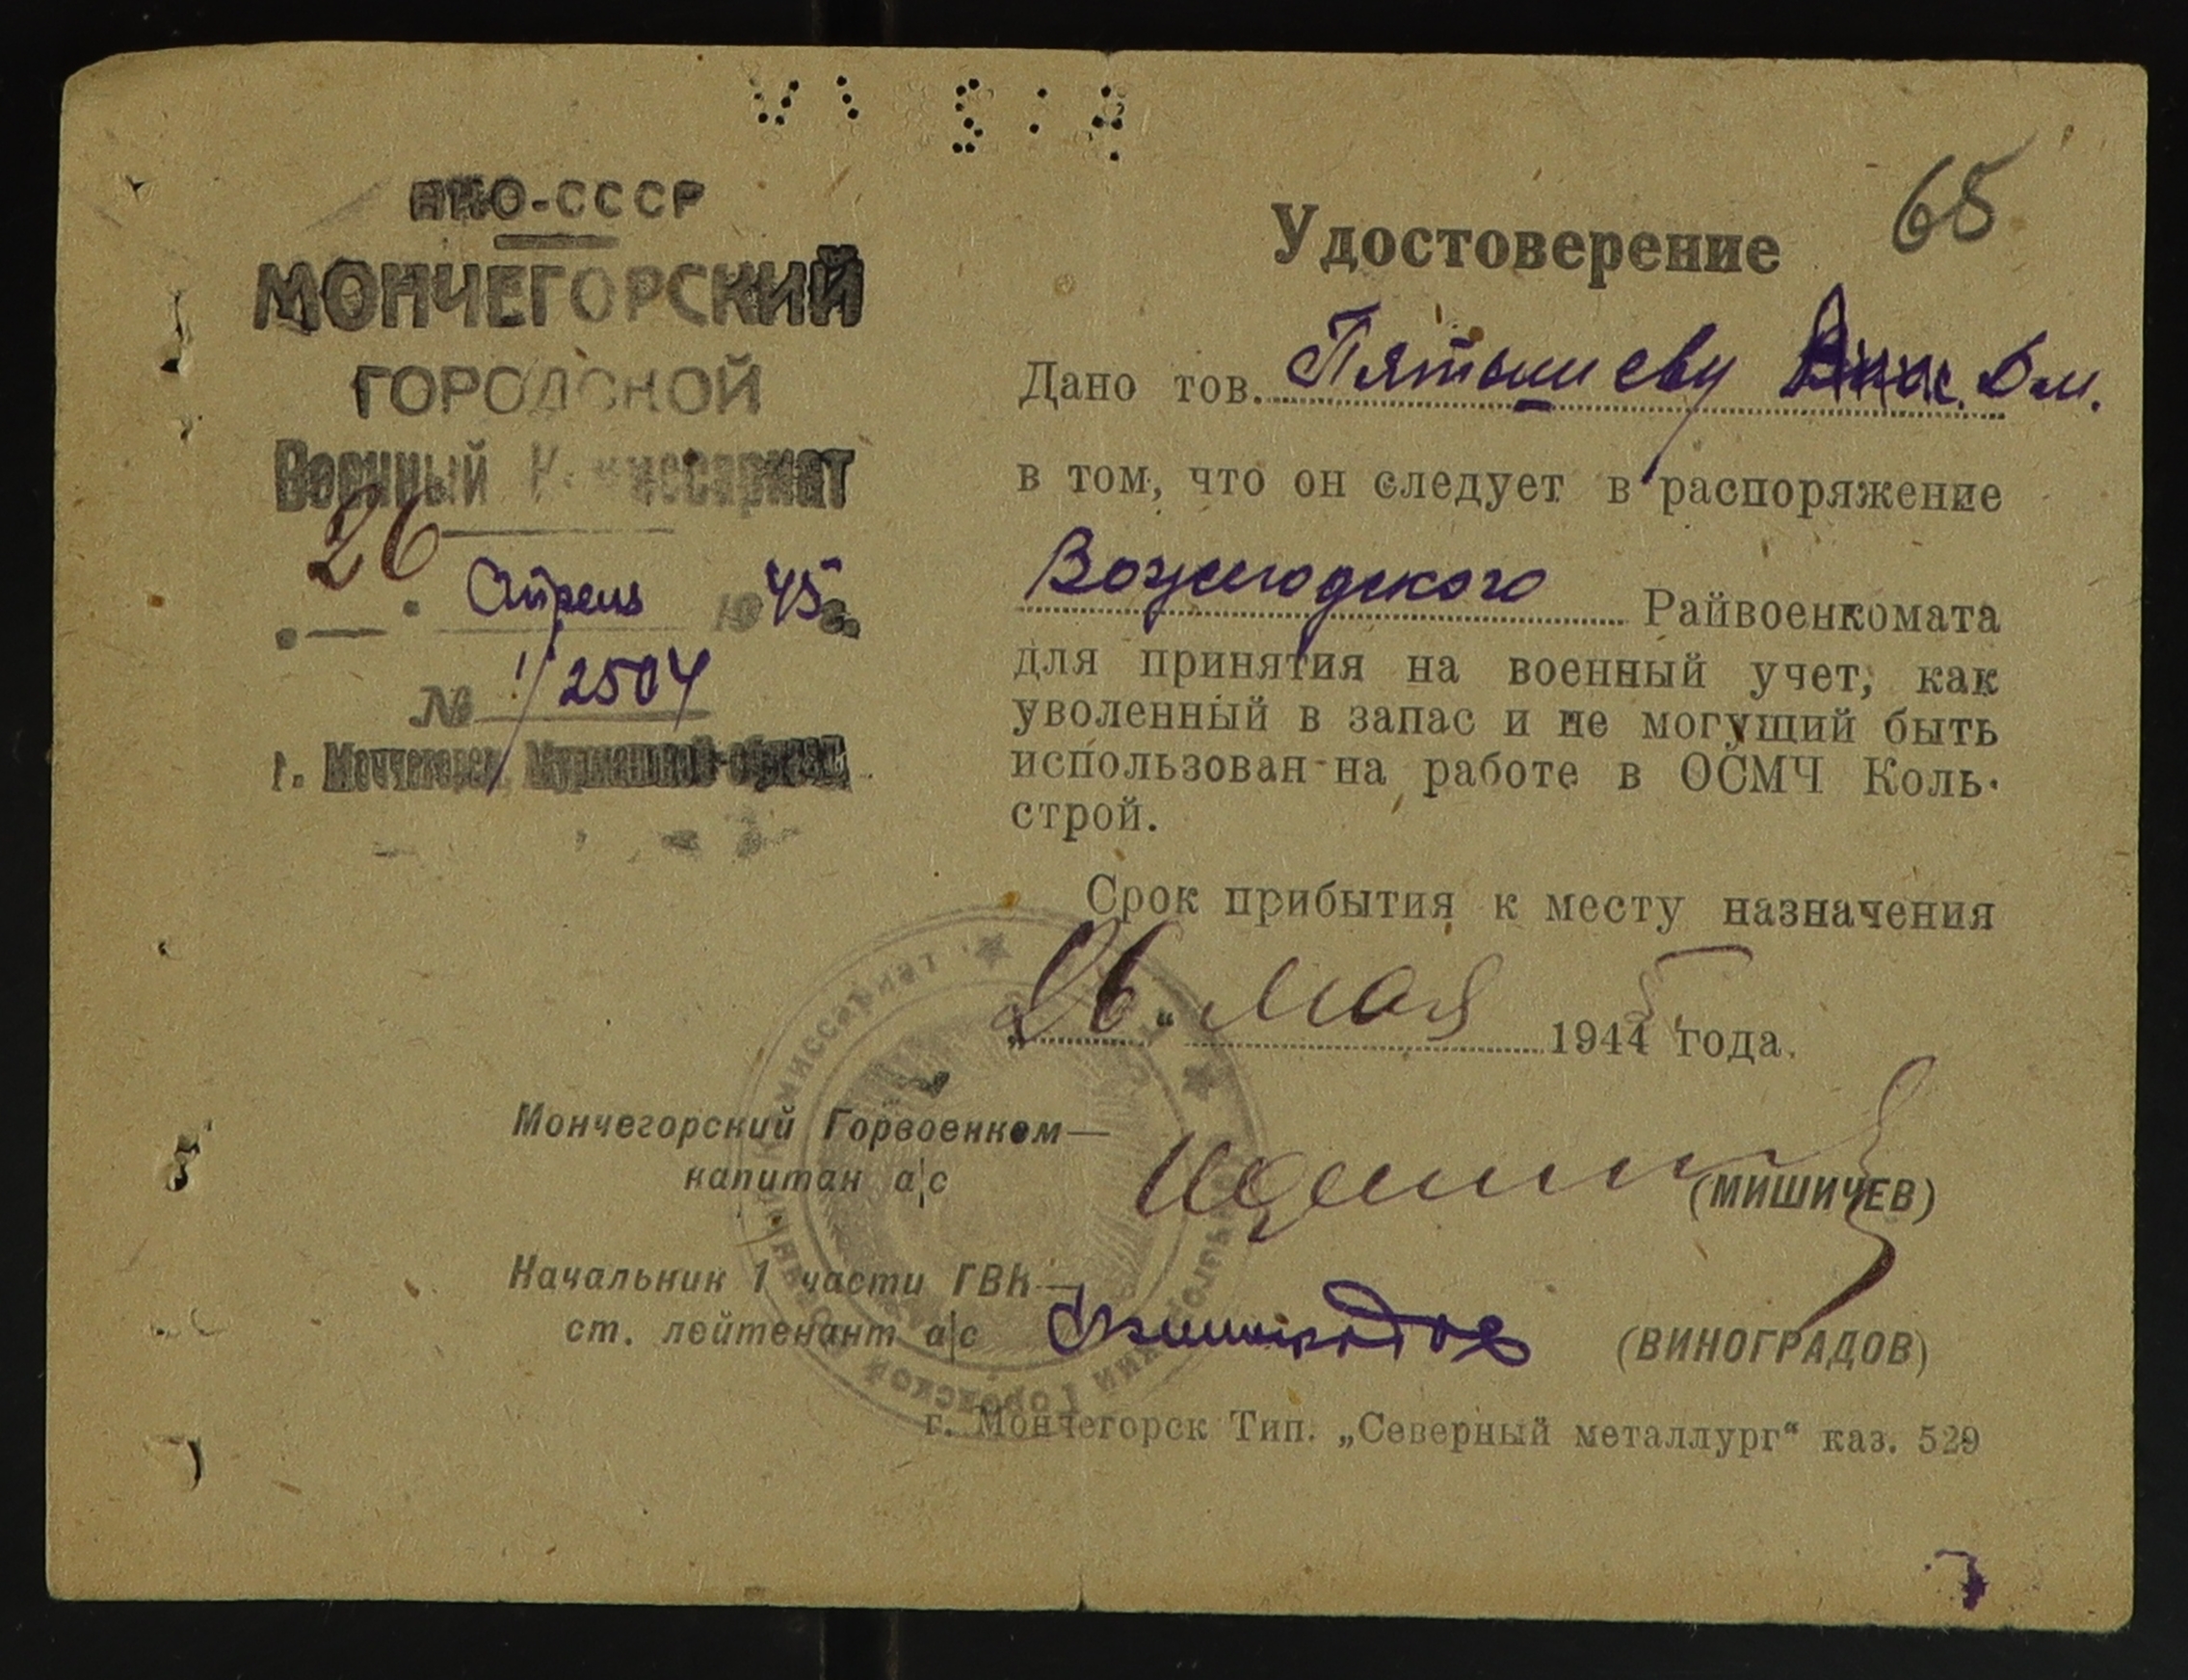 НКО-СССР
МОНЧЕГОРСКИЙ
ГОРОДСКОЙ
Военный Комиссариат
26
Апрель 1945 г.
№ 1/2504
г. Мончегорск, Мурманской
65
Удостоверение
Дано тов. Пятышеву
в том, что он следует в распоряжение
Вожегодского Райвоенкомата
для принятия на военный учет, как
уволенный в запас и не могущий быть
использован на работе в ОСМЧ Коль-
строй.
Срок прибытия к месту назначения
„26“ мая 1945 года.
Мончегорский Горвоенком—
капитан а|с (МИШИЧЕВ)
Начальник 1 части ГВК—
ст. лейтенант а|с (ВИНОГРАДОВ)
г. Мончегорск Тип. „Северный металлург“ каз. 529